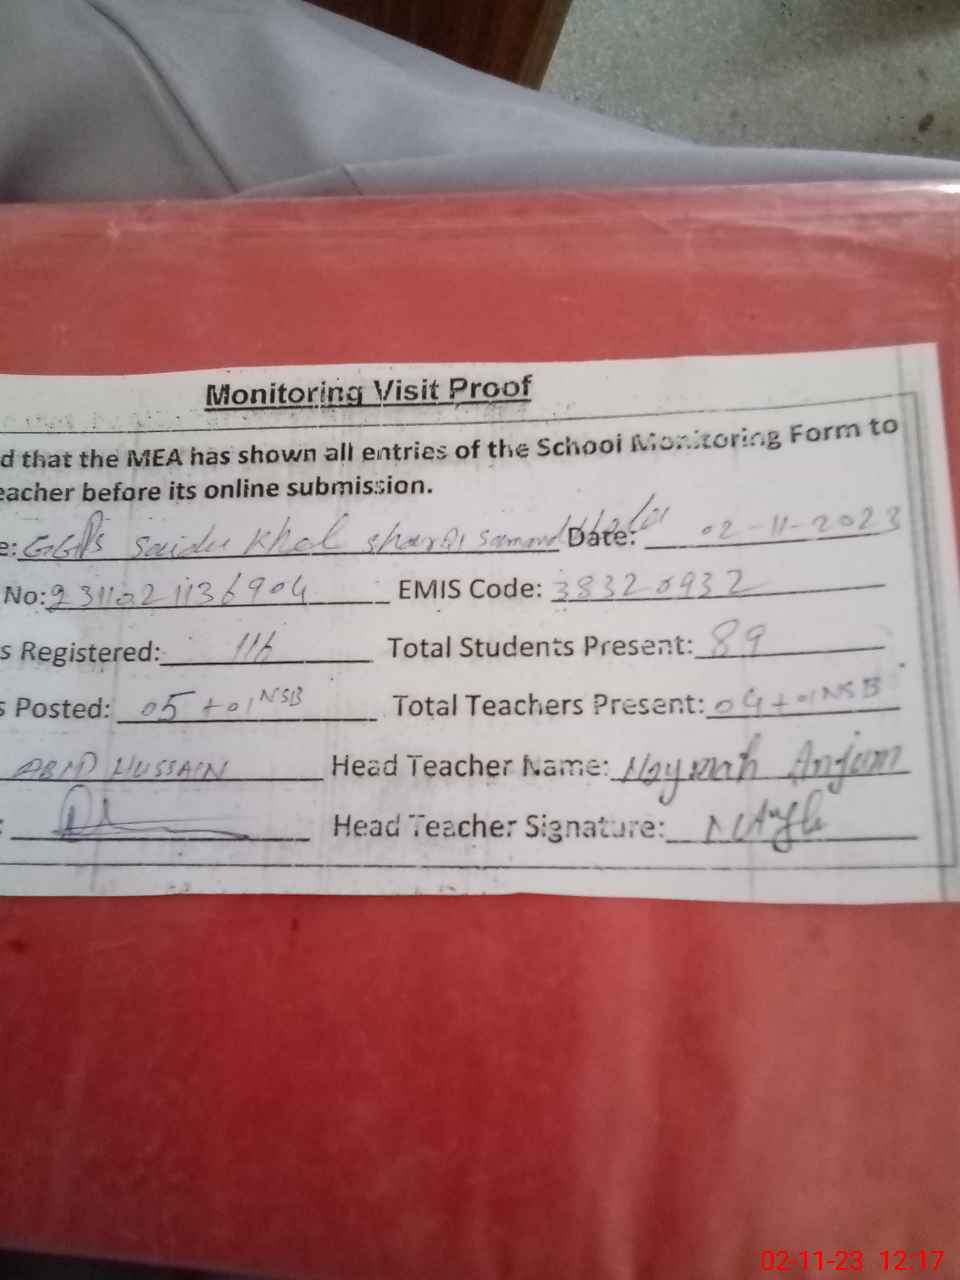 Monitoring Visit Proof
d that the MEA has shown all entries of the School Monitoring Form to
eacher before its online submission.
e: GGPS Saidu Khel sharqi Date: 02-11-2023
No: 231102 1136904 EMIS Code: 38320932
s Registered: 116 Total Students Present: 89
s Posted: 05 + 01 NSB Total Teachers Present: 04 + 01 NSB
ABID HUSSAIN Head Teacher Name: Anjum
: Head Teacher Signature:
02-11-23 12:17